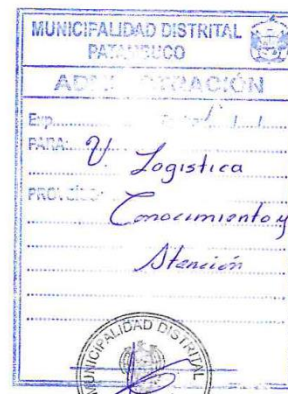 MUNICIPALIDAD DISTRITAL
PATAMBUCO
ADMINISTRACIÓN
Exp.
PARA: U. Logistica
PROVEIDO:
Conocimiento y
Atención
MUNICIPALIDAD DISTRITAL